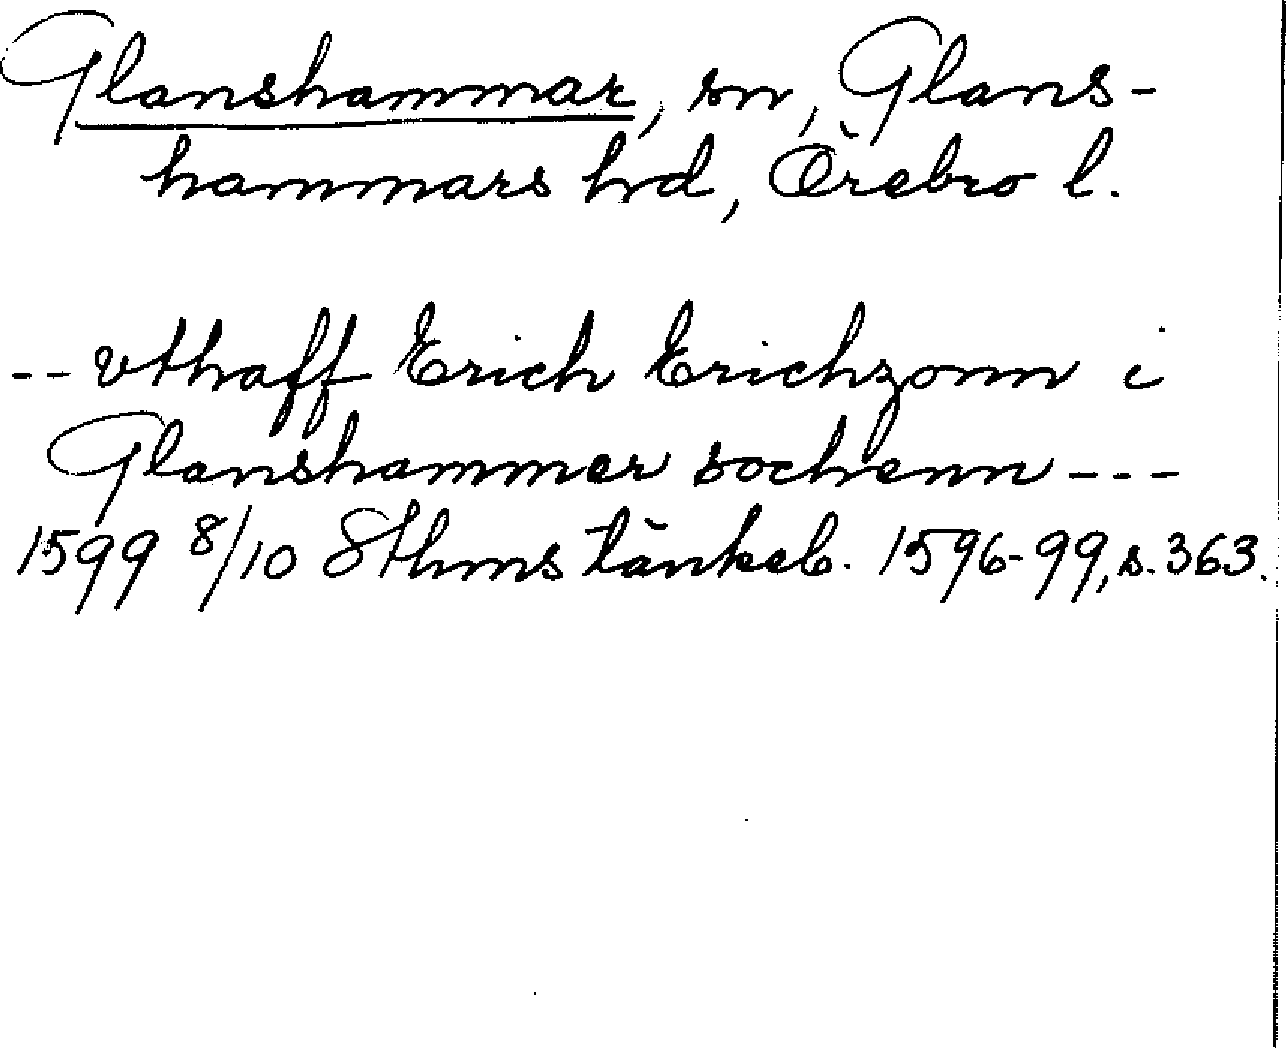 Glanshammar, sn, Glans-
hammars hd, Örebro l.
-- vthaff Erich Erichzonn i
Glanshammer sochenn ---
1599 8/10 Sthms tänkeb. 1596-99, s. 363.